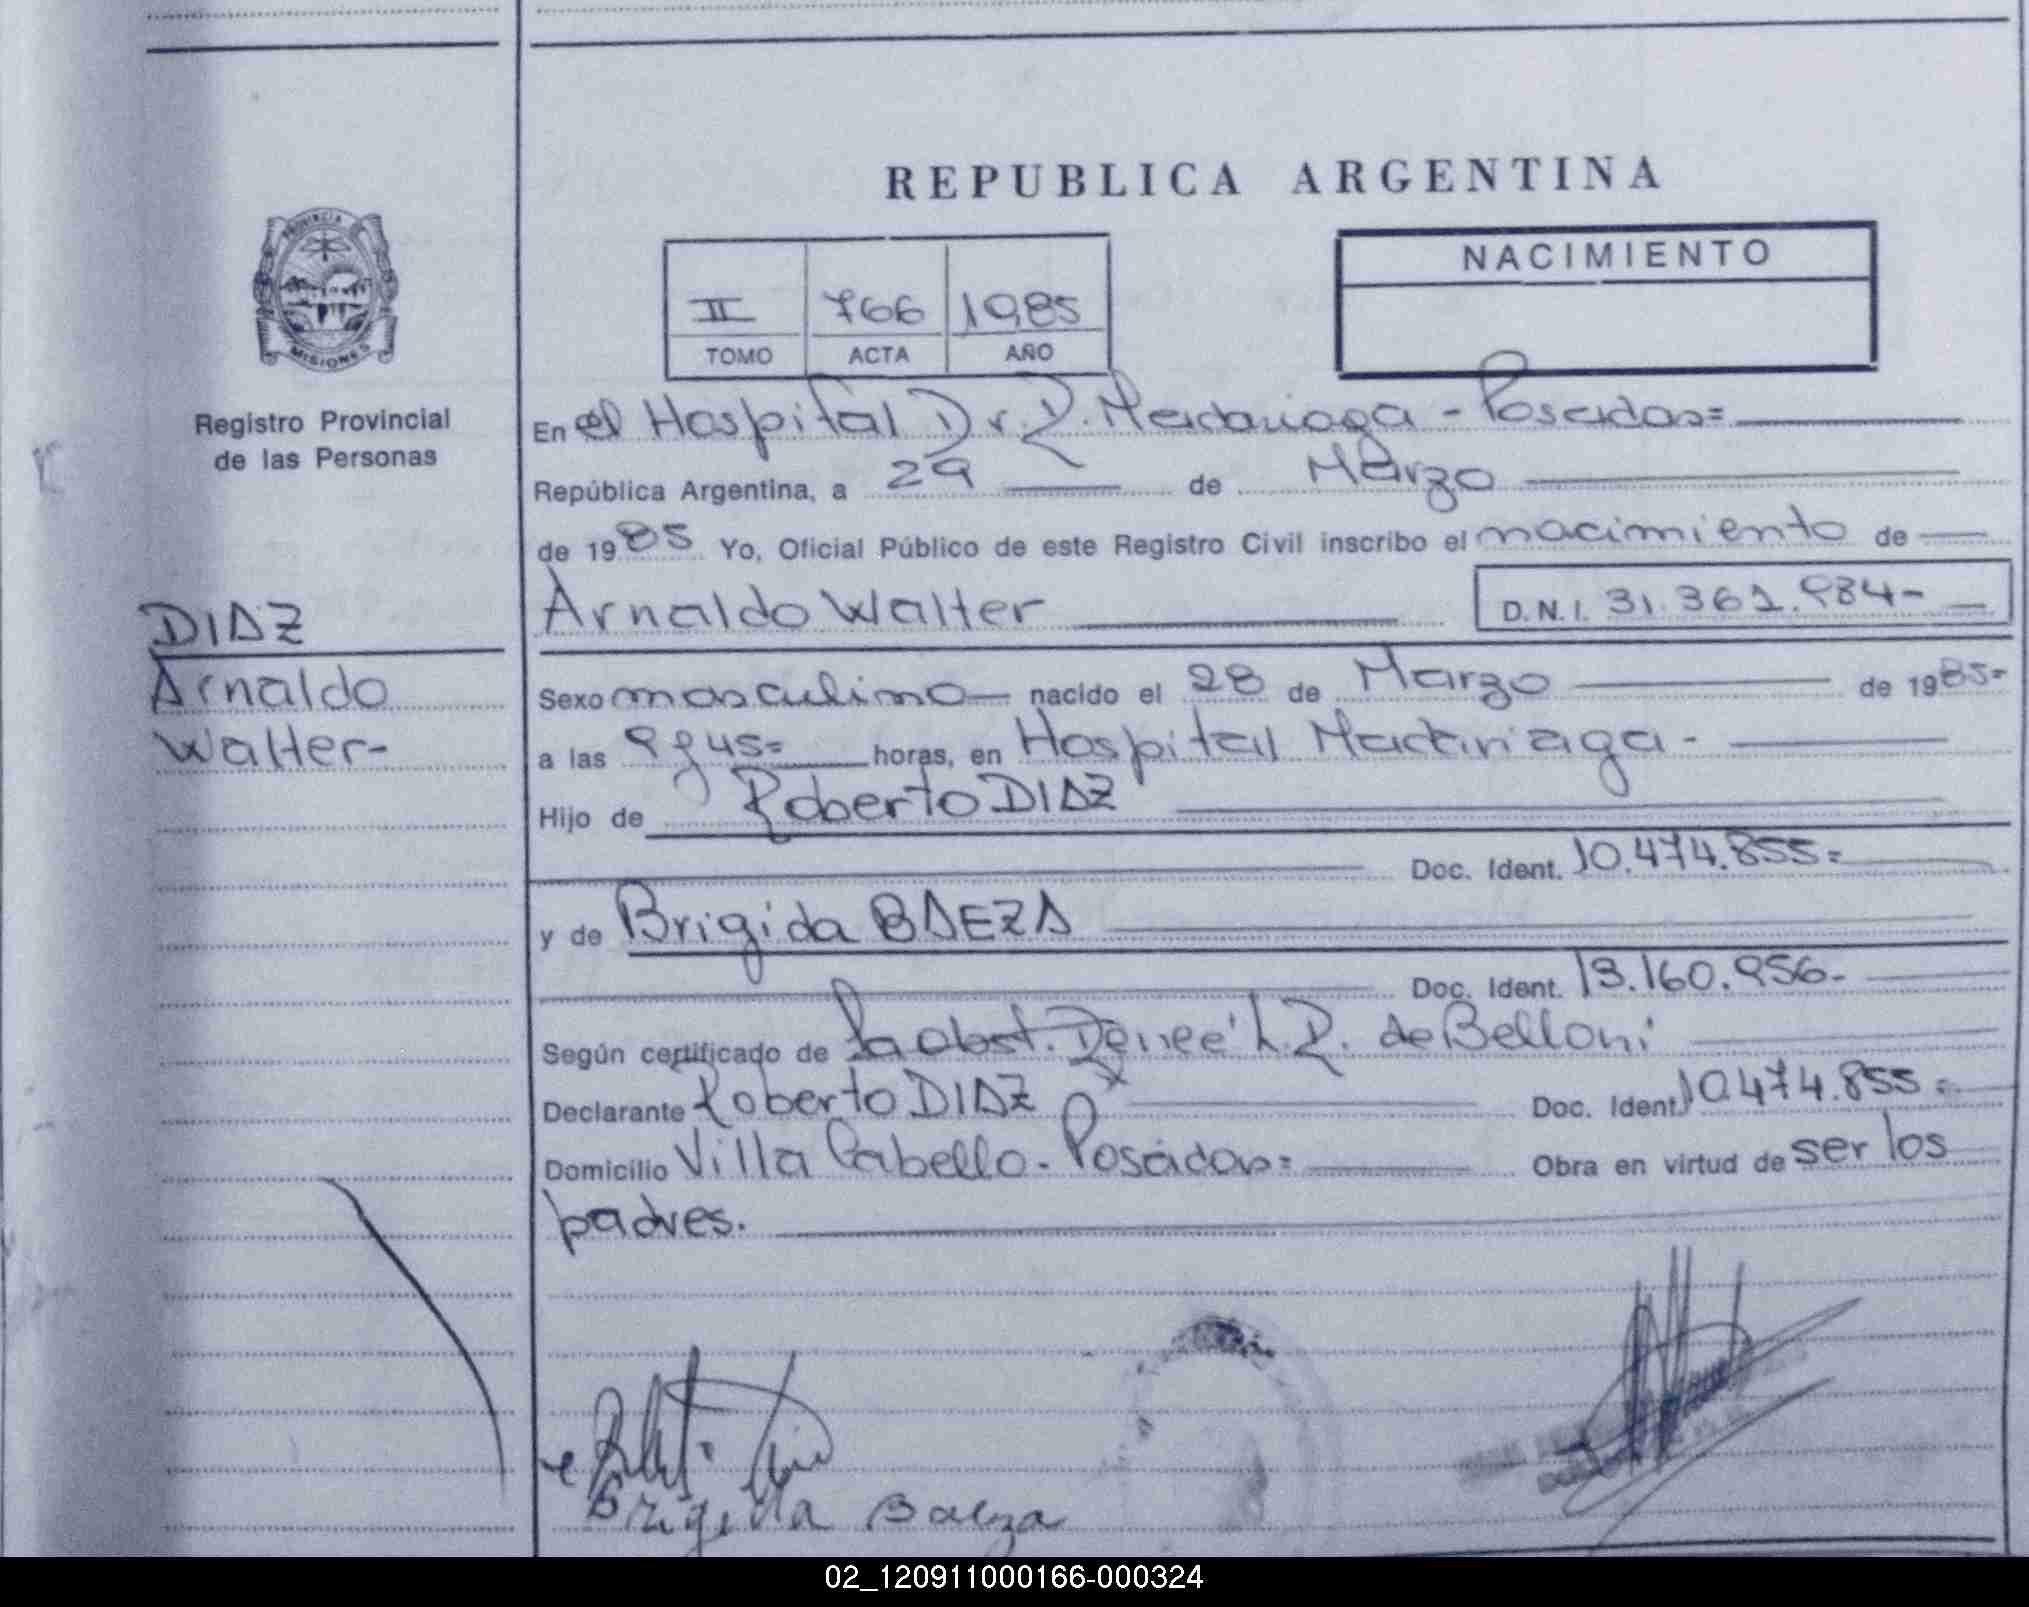 REPUBLICA ARGENTINA
PROVINCIA
MISIONES
Registro Provincial
de las Personas
NACIMIENTO
II 766 1985
TOMO ACTA AÑO
En el Hospital Dr. R. Madariaga - Posadas=
República Argentina, a 29 de Marzo
de 1985 Yo, Oficial Público de este Registro Civil inscribo el nacimiento de
Arnaldo Walter D.N.I. 31.361.984-
DIAZ
Arnaldo
Walter-
Sexo masculino nacido el 28 de Marzo de 1985=
a las 9 y 45= horas, en Hospital Madariaga -
Hijo de Roberto DIAZ
Doc. Ident. 10.474.855=
y de Brigida BAEZA
Doc. Ident. 13.160.956-
Según certificado de la obst. Reneé L. R. de Belloni
Declarante Roberto DIAZ Doc. Ident. 10.474.855=
Domicilio Villa Cabello - Posadas= Obra en virtud de ser los
padres.
Brigida Baeza
02_120911000166-000324